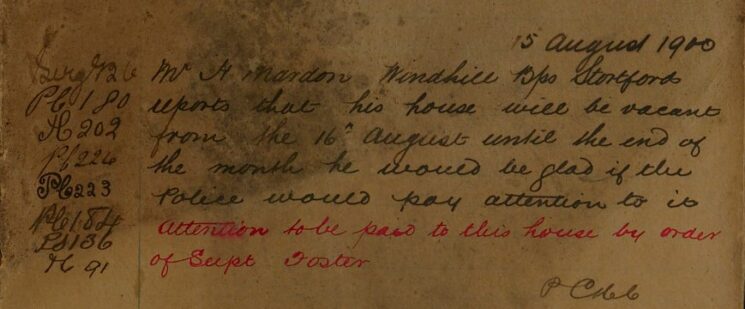 15 August 1900
Serg N 26 Mr H Mardon Windhill Bps Stortford
Pc 180 reports that his house will be vacant
A 202 from the 16th August until the end of
Pc 226 the month he would be glad if the
Pc 223 Police would pay attention to it
Pc 184 Attention to be paid to this house by order
Ps 136 of Supt Foster
91